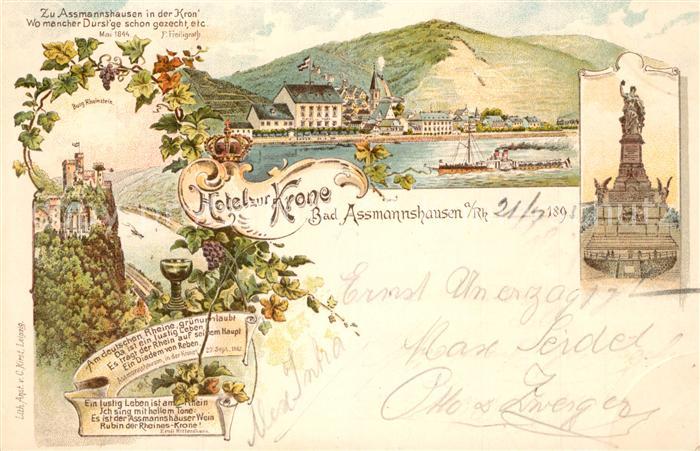 Zu Assmannshausen in der Kron'
Wo mancher Durst'ge schon gezecht, etc.
Mai 1844. F. Freiligrath
Burg Rheinstein.
Hotel zur Krone
Bad Assmannshausen a/Rh. 21/7 189
Ernst Unerzagt
Max Seidel
Otto Zwerger
Am deutschen Rheine, grünumlaubt
Da ist ein lustig Leben
Es trägt der Rhein auf seinem Haupt
Ein Diadem von Reben.
Assmannshausen, in der Krone, 23. Sept.
Ein lustig Leben ist am Rhein
Ich sing mit hellem Tone:
Es ist der Assmannshäuser Wein
Rubin der Rheines-Krone!
Emil Rittershaus.
Lith. Anst. v. C. Kirst, Leipzig.